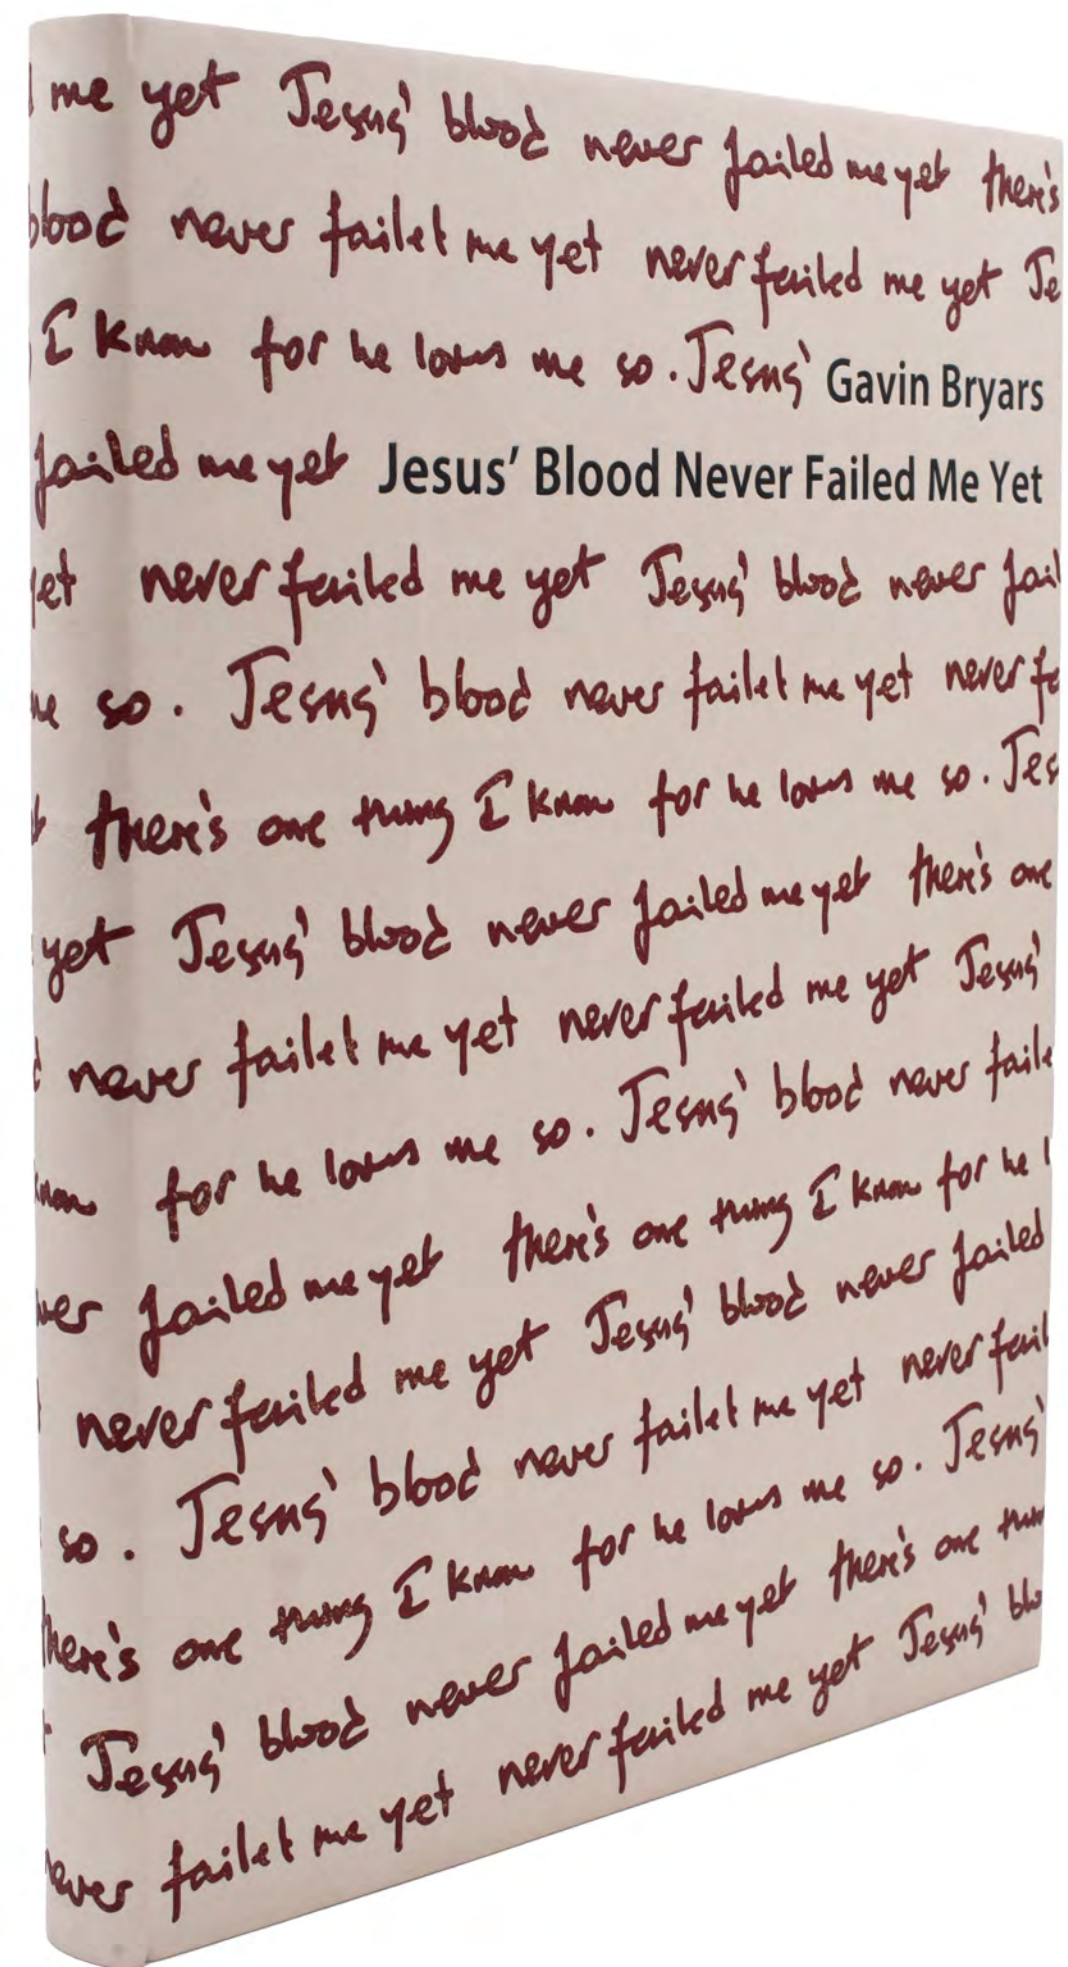 me yet Jesus' blood never failed me yet there's
blood never failed me yet never failed me yet Je
I know for he loves me so. Jesus' Gavin Bryars
failed me yet Jesus' Blood Never Failed Me Yet
yet never failed me yet Jesus' blood never fail
me so. Jesus' blood never failed me yet never fa
there's one thing I know for he loves me so. Jes
yet Jesus' blood never failed me yet there's one
never failed me yet never failed me yet Jesus'
know for he loves me so. Jesus' blood never faile
ver failed me yet there's one thing I know for he l
never failed me yet Jesus' blood never failed
so. Jesus' blood never failed me yet never fail
there's one thing I know for he loves me so. Jesus'
Jesus' blood never failed me yet there's one thin
never failed me yet never failed me yet Jesus' blo